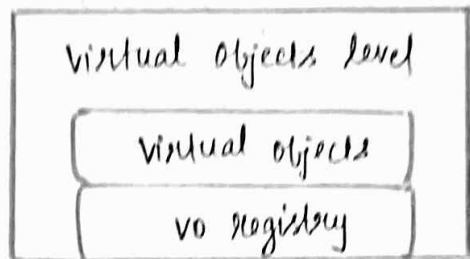 virtual objects level
virtual objects
vo registry